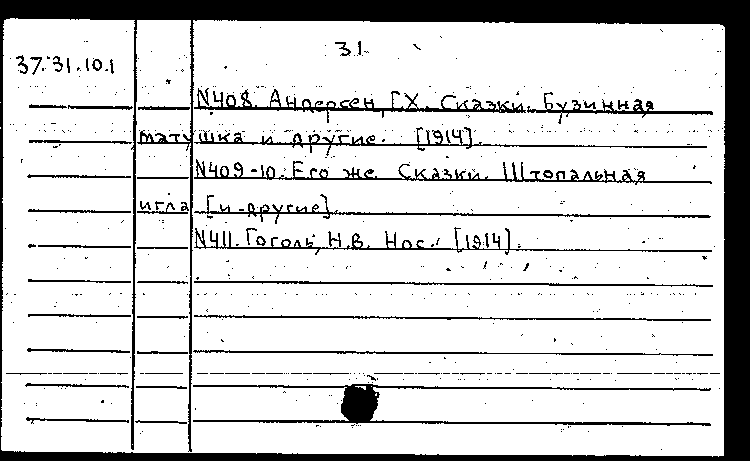 31
37.31.10.1
N408. Андерсен, Г.Х. Сказки. Бузинная
матушка и другие. [1914].
N409-10. Его же. Сказки. Штопальная
игла [и другие]
N411. Гоголь, Н.В. Нос. [1914].